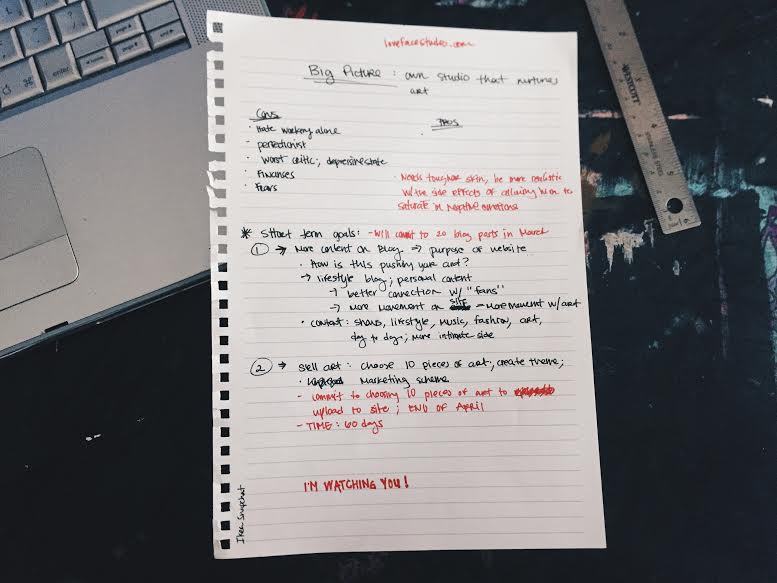 lovefacestudio.com
Big Picture : own studio that nurtures
art
Cons
PROS
• Hate working alone
• perfectionist
• worst critic; depressive state
• Finances
• Fears
• Needs tougher skin, be more realistic
w/ the side effects of allowing him to
saturate in negative emotions
* Short term goals: - Will commit to 20 blog posts in March
① → More content on Blog → purpose of website
• How is this pushing your art?
→ lifestyle blog; personal content
→ better connection w/ "fans"
→ More movement on SITE - More movement w/ art
• content: shows, lifestyle, music, fashion, art,
day to days; more intimate side
② → Sell art : choose 10 pieces of art, create theme;
• Marketing scheme
- commit to choosing 10 pieces of art to
upload to site ; END OF APRIL
- TIME : 60 days
I'M WATCHING YOU!
Ikea Snapchat
enter